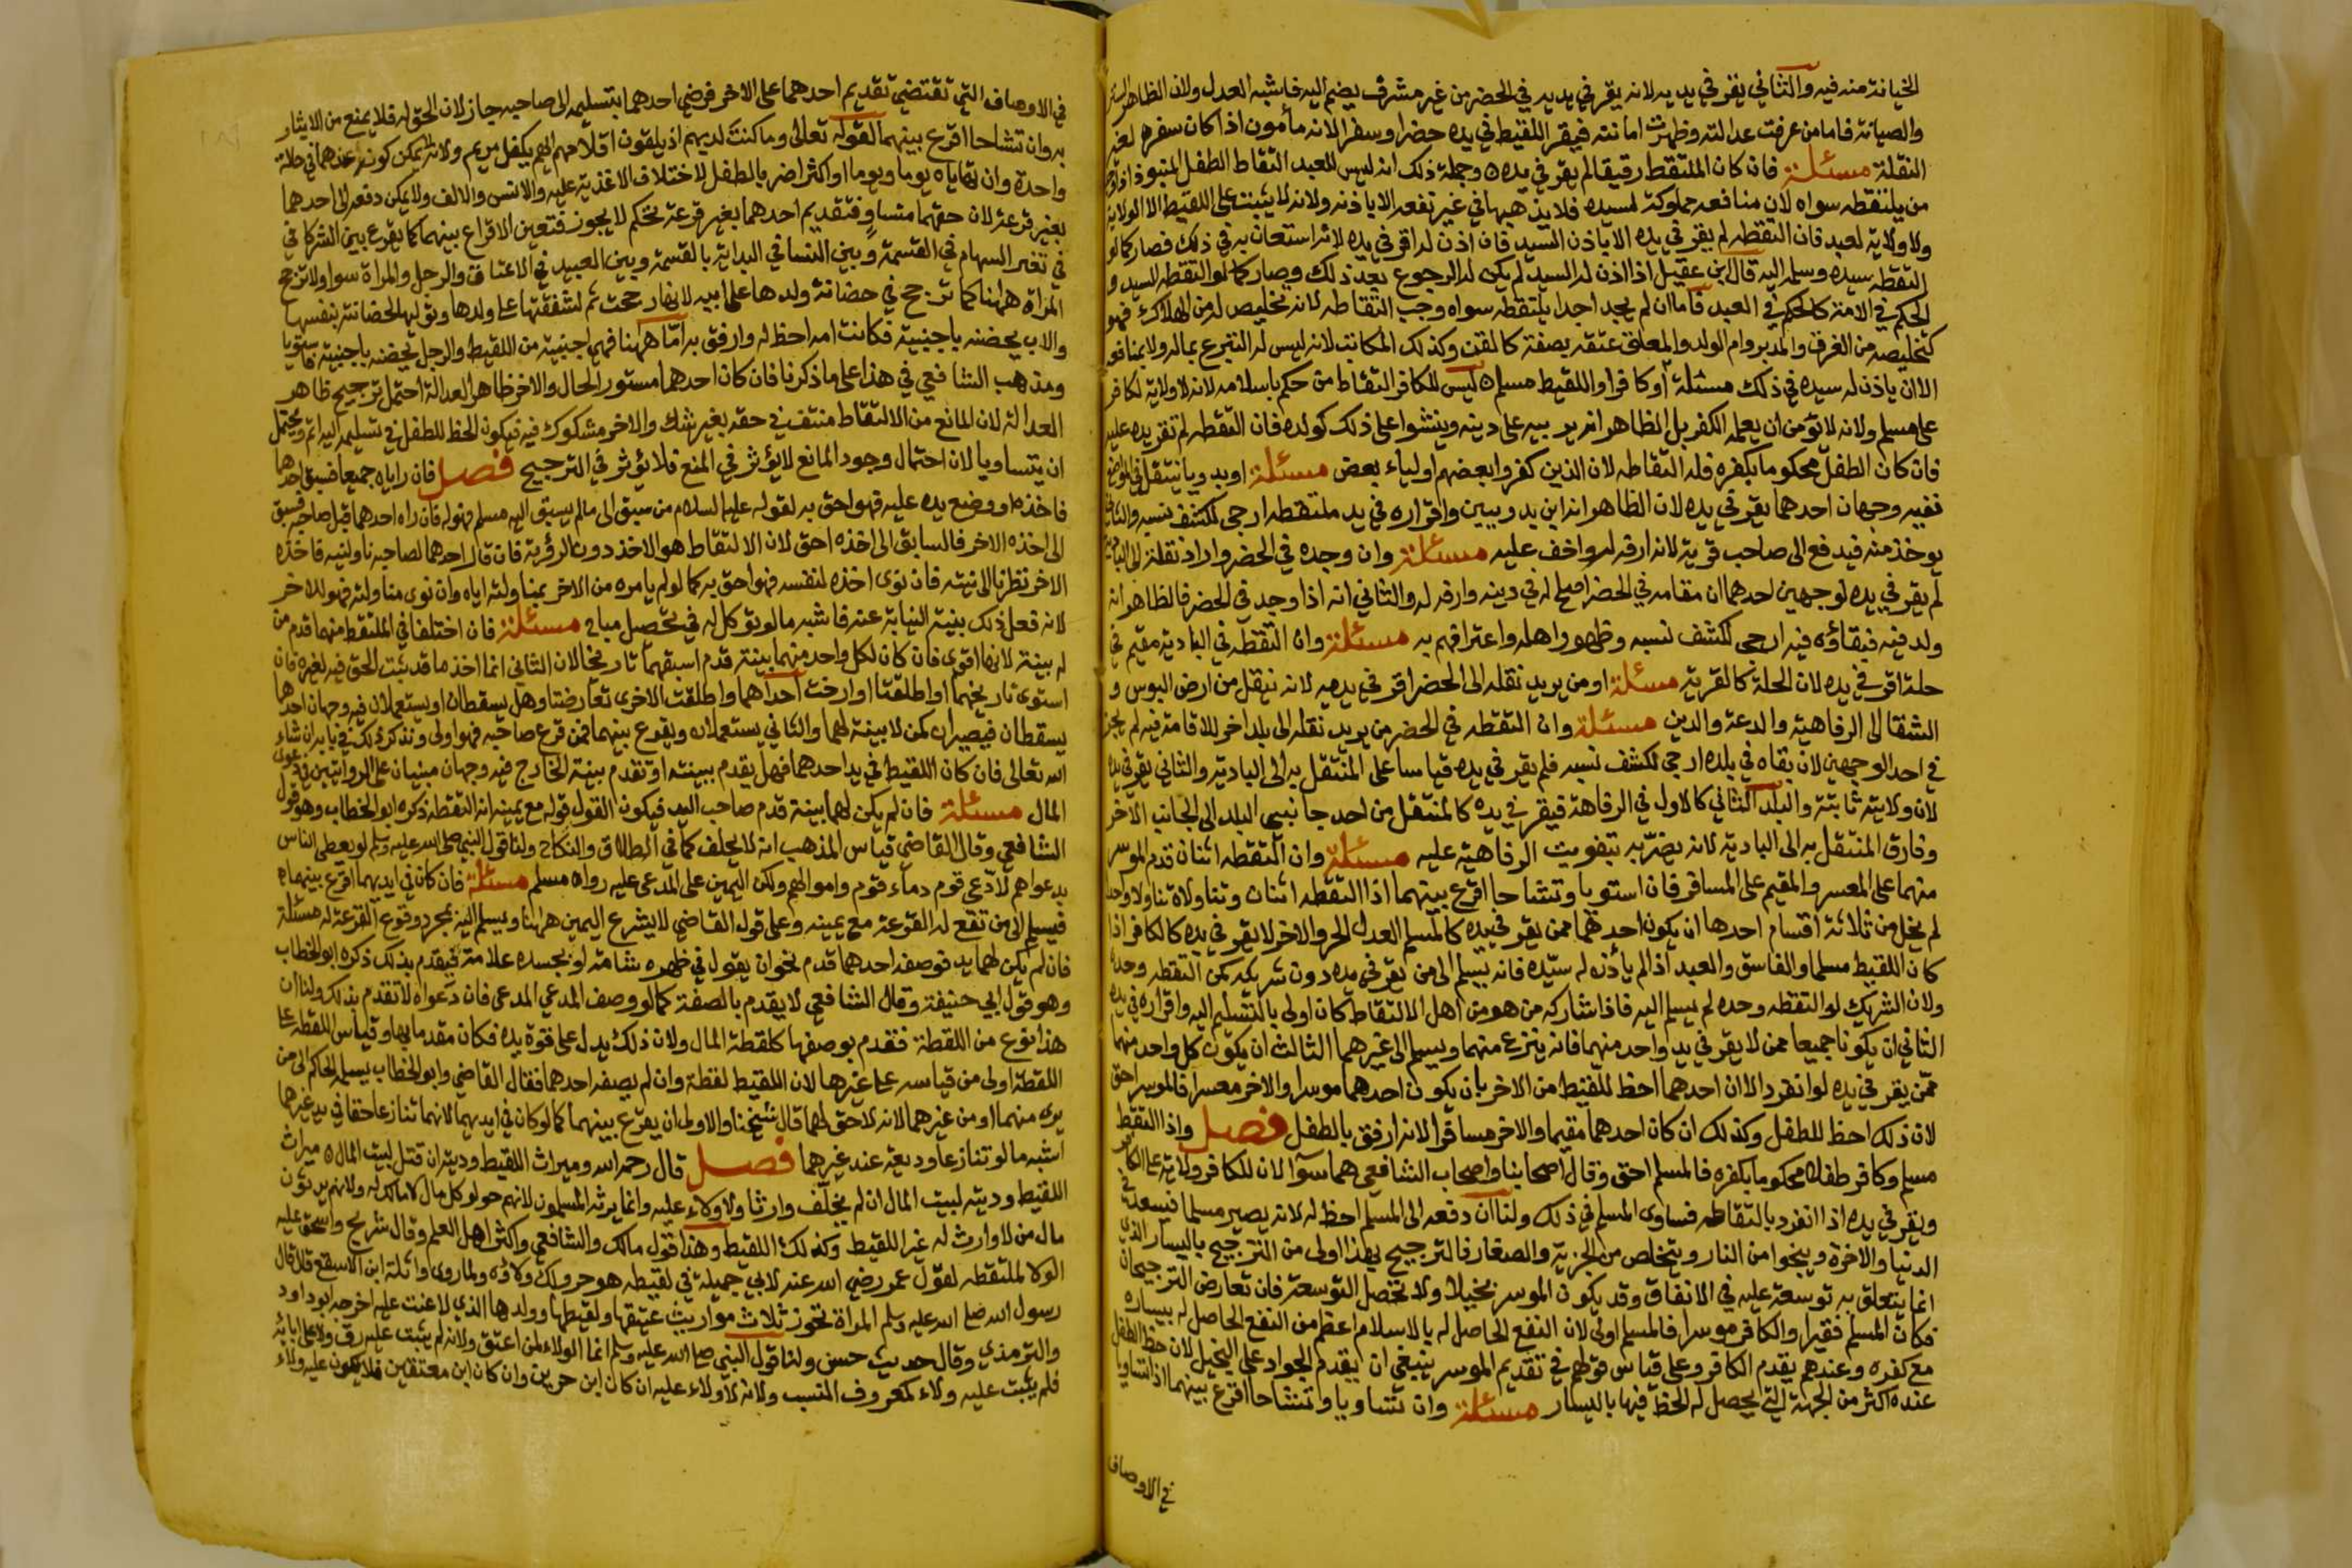 الخيانة منه فيه والثاني يقر في يديه لانه يقر في يديه في الحضر من غير مشرف يضم اليه فاشبه العدل ولان الظاهر الستر
والصيانة فاما من عرفت عدالته وظهرت امانته فيقر اللقيط في يده حضرا وسفرا لانه مأمون اذا كان سفره لغير
النقلة مسئلة فان كان الملتقط رقيقا لم يقر في يده وجملة ذلك انه ليس للعبد التقاط الطفل المنبوذ اذا وجد
من يلتقطه سواه لان منافعه مملوكة لسيده فلا يذهبها في غير نفعه الا باذنه ولانه لا يثبت على اللقيط الا الولاية
ولا ولاية لعبد فان التقطه لم يقر في يده الا باذن السيد فان اذن له اقر في يده لانه استعان به في ذلك فصار كما لو
التقطه سيده وسلمه اليه قال ابن عقيل اذا اذن له السيد لم يكن له الرجوع بعد ذلك وصار كما لو التقطه السيد و
الحكم في الامة كالحكم في العبد فاما ان لم يجد احدا يلتقطه سواه وجب التقاطه لانه تخليص له من الهلاك فهو
كتخليصه من الغرق والمدبر وام الولد والمعلق عتقه بصفة كالقن وكذلك المكاتب لانه ليس له التبرع بماله ولا بمنافعه
الا ان ياذن له سيده في ذلك مسئلة او كافرا واللقيط مسلم ليس للكافر التقاط من حكم باسلامه لانه لا ولاية لكافر
على مسلم ولانه لا يؤمن ان يعلمه الكفر بل الظاهر انه يربيه على دينه وينشوا على ذلك كولده فان التقطه لم تقر يده عليه
فان كان الطفل محكوما بكفره فله التقاطه لان الذين كفروا بعضهم اولياء بعض مسئلة او بدويا ينتقل في المواضع
ففيه وجهان احدهما يقر في يده لان الظاهر انه ابن بدويين واقراره في يد ملتقطه ارجى لكشف نسبه والثاني
يوخذ منه فيدفع الى صاحب قرية لانه ارفه له واخف عليه مسئلة وان وجده في الحضر واراد نقلة الى البادية
لم يقر في يده لوجهين احدهما ان مقامه في الحضر اصلح له في دينه وارفه له والثاني انه اذا وجد في الحضر فالظاهر انه
ولد فيه فبقاؤه فيه ارجى لكشف نسبه وظهور اهله واعترافهم به مسئلة وان التقطه في البادية مقيم في
حلة اقر في يده لان الحلة كالقرية مسئلة او من يريد نقله الى الحضر اقر في يديه لانه ينقل من ارض البوس و
الشقا الى الرفاهية والدعة والدين مسئلة وان التقطه في الحضر من يريد نقله الى بلد اخر للاقامة فيه لم يجز
في احد الوجهين لان بقاه في بلده ارجى لكشف نسبه فلم يقر في يده قياسا على المنتقل به الى البادية والثاني يقر في يده
لان ولايته ثابتة والبلد الثاني كالاول في الرفاهة فيقر في يده كالمنتقل من احد جانبي البلد الى الجانب الاخر
وفارق المنتقل به الى البادية لانه يضر به بتفويت الرفاهية عليه مسئلة وان التقطه اثنان قدم الموسر
منهما على المعسر والمقيم على المسافر فان استويا وتشاحا اقرع بينهما اذا التقطه اثنان وتناولاه تناولا واحدا
لم يخل من ثلاثة اقسام احدها ان يكون احدهما ممن يقر في يده كالمسلم العدل الحر والاخر لا يقر في يده كالكافر اذا
كان اللقيط مسلما والفاسق والعبد اذا لم يأذن له سيده فانه يسلم الى من يقر في يده دون شريكه كمن التقطه وحده
ولان الشريك لو التقطه وحده لم يسلم اليه فاذا شاركه من هو من اهل الالتقاط كان اولى بالتسليم اليه واقراره في يده
الثاني ان يكونا جميعا ممن لا يقر في يد واحد منهما فانه ينزع منهما ويسلم الى غيرهما الثالث ان يكون كل واحد منهما
ممن يقر في يده لو انفرد الا ان احدهما احظ للقيط من الاخر بان يكون احدهما موسرا والاخر معسرا فالموسر احق
لان ذلك احظ للطفل وكذلك ان كان احدهما مقيما والاخر مسافرا لانه ارفق بالطفل فصل واذا التقط
مسلم وكافر طفلا محكوما بكفره فالمسلم احق وقال اصحابنا واصحاب الشافعي هما سوا لان للكافر ولاية على الكافر
ويقر في يده اذا انفرد بالتقاطه فساوى المسلم في ذلك ولنا ان دفعه الى المسلم احظ له لانه يصير مسلما فيسعد في
الدنيا والاخرة وينجوا من النار ويتخلص من الجزية والصغار فالترجيح بهذا اولى من الترجيح باليسار الذي
انما يتعلق به توسعة عليه في الانفاق وقد يكون الموسر بخيلا ولا تحصل التوسعة فان تعارض الترجيحان
فكان المسلم فقيرا والكافر موسرا فالمسلم اولى لان النفع الحاصل له بالاسلام اعظم من النفع الحاصل له بيساره
مع كفره وعندهم يقدم الكافر وعلى قياس قولهم في تقديم الموسر ينبغي ان يقدم الجواد على البخيل لان حظ الطفل
عنده اكثر من الجهة التي يحصل له الحظ فيها باليسار مسئلة وان تساويا وتشاحا اقرع بينهما اذا تساويا
في الاوصاف
في الاوصاف التي تقتضي تقديم احدهما على الاخر فرضي احدهما بتسليمه الى صاحبه جاز لان الحق له فلا يمنع من الايثار
به وان تشاحا اقرع بينهما لقوله تعالى وما كنت لديهم اذ يلقون اقلامهم ايهم يكفل مريم ولانه لا يمكن كونه عندهما في حالة
واحدة وان تهاياه يوما ويوما او اكثر اضر بالطفل لاختلاف الاغذية عليه والانس والالف ولا يمكن دفعه الى احدهما
بغير قرعة لان حقهما متساو فتقديم احدهما بغير قرعة تحكم لا يجوز فتعين الاقراع بينهما كما يقرع بين الشركا في
في تغير السهام في القسمة وبين النسا في البداية بالقسمة وبين العبيد في الاعتاق والرجل والمراة سوا ولا ترجح
المراة ههنا كما ترجح في حضانة ولدها على ابيه لانها رجحت ثم لشفقتها على ولدها وتوليها لحضانته بنفسها
والاب يحضنه باجنبية فكانت امه احظ له وارفق به اما ههنا فهي اجنبية من اللقيط والرجل يحضنه باجنبية فاستويا
ومذهب الشافعي في هذا على ما ذكرنا فان كان احدهما مستور الحال والاخر ظاهر العدالة احتمل ترجيح ظاهر
العدالة لان المانع من الالتقاط منتف في حقه بغير شك والاخر مشكوك فيه فيكون الحظ للطفل في تسليمه اليه اتم ويحتمل
ان يتساويا لان احتمال وجود المانع لا يؤثر في المنع فلا يؤثر في الترجيح فصل فان راياه جميعا فسبق احدهما
فاخذه او وضع يده عليه فهو احق به لقوله عليه السلام من سبق الى مالم يسبق اليه مسلم فهو له فان راه احدهما قبل صاحبه فسبق
الى اخذه الاخر فالسابق الى اخذه احق لان الالتقاط هو الاخذ دون الرؤية فان قال احدهما لصاحبه ناولنيه فاخذه
الاخر نظرنا الى نيته فان نوى اخذه لنفسه فهو احق به كما لو لم يامره من الاخر بمناولته اياه وان نوى مناولته فهو للاخر
لانه فعل ذلك بنية النيابة عنه فاشبه مالو توكل له في تحصيل مباح مسئلة فان اختلفا في الملتقط منهما قدم من
له بينة لانها اقوى فان كان لكل واحد منهما بينة قدم اسبقهما تاريخا لان الثاني انما اخذ ما قد ثبت الحق فيه لغيره فان
استوى تاريخهما او اطلقتا او ارخت احداهما واطلقت الاخرى تعارضتا وهل يسقطان او يستعملان فيه وجهان احدهما
يسقطان فيصيران كمن لا بينة لهما والثاني يستعملان ويقرع بينهما فمن قرع صاحبه فهو اولى ونذكر ذلك في بابه ان شاء
الله تعالى فان كان اللقيط في يد احدهما فهل يقدم ببينته او تقدم بينة الخارج فيه وجهان مبنيان على الروايتين في دعوى
المال مسئلة فان لم يكن لهما بينة قدم صاحب اليد فيكون القول قوله مع يمينه انه التقطه ذكره ابو الخطاب وهو قول
الشافعي وقال القاضي قياس المذهب انه لا يحلف كما في الطلاق والنكاح ولنا قول النبي صلى الله عليه وسلم لو يعطى الناس
بدعواهم لادعى قوم دماء قوم واموالهم ولكن اليمين على المدعى عليه رواه مسلم مسئلة فان كان في ايديهما اقرع بينهما
فيسلم الى من تقع له القرعة مع يمينه وعلى قول القاضي لا يشرع اليمين ههنا ويسلم اليه بمجرد وقوع القرعة له مسئلة
فان لم يكن لهما يد فوصفه احدهما قدم نحو ان يقول في ظهره شامة او بجسده علامة فيقدم بذلك ذكره ابو الخطاب
وهو قول ابي حنيفة وقال الشافعي لا يقدم بالصفة كما لو وصف المدعي المدعى فان دعواه لا تقدم بذلك ولنا ان
هذا نوع من اللقطة فقدم بوصفها كلقطة المال ولان ذلك يدل على قوة يده فكان مقدما بها وقياس اللقطة على
اللقطة اولى من قياسه على غيرها لان اللقيط لقطة وان لم يصفه احدهما فقال القاضي وابو الخطاب يسلمه الحاكم الى من
يرى منهما او من غيرهما لانه لا حق لهما قال شيخنا والاولى ان يقرع بينهما كما لو كان في ايديهما لانهما تنازعا حقا في يد غيرهما
اشبه مالو تنازعا وديعة عند غيرهما فصل قال رحمه الله وميراث اللقيط وديته ان قتل لبيت المال ميراث
اللقيط وديته لبيت المال ان لم يخلف وارثا ولا ولاء عليه وانما يرثه المسلمون لانهم خولوا كل مال لا مالك له ولانهم يرثون
مال من لا وارث له غير اللقيط وكذلك اللقيط وهذا قول مالك والشافعي واكثر اهل العلم وقال شريح واسحق عليه
الولا لملتقطه لقول عمر رضي الله عنه لابي جميلة في لقيطه هو حر ولك ولاؤه ولما روى واثلة ابن الاسقع قال قال
رسول الله صلى الله عليه وسلم المراة تحوز ثلاث مواريث عتيقها ولقيطها وولدها الذي لاعنت عليه اخرجه ابو داود
والترمذي وقال حديث حسن ولنا قول النبي صلى الله عليه وسلم انما الولاء لمن اعتق ولانه لم يثبت عليه رق ولا على ابائه
فلم يثبت عليه ولاء كمعروف النسب ولانه لا ولاء عليه ان كان ابن حرين وان كان ابن معتقين فلا يكون عليه ولاء